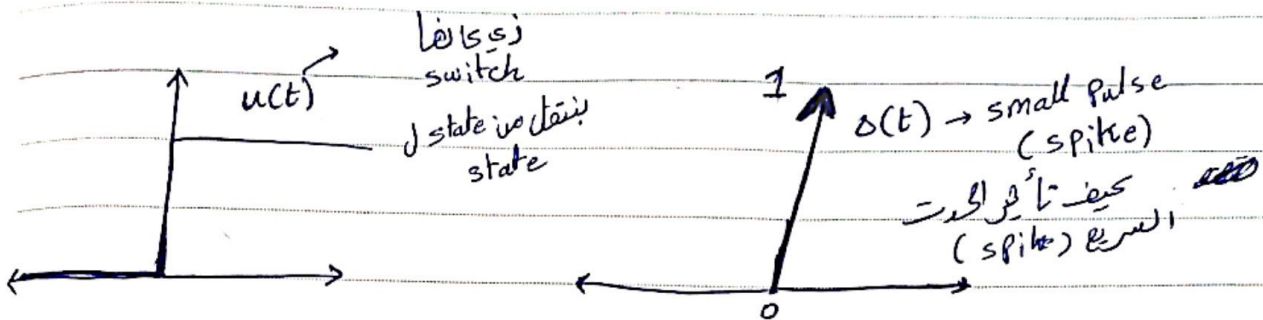 u(t) → زي كانها
switch
بنتقل من state ل
state
1
δ(t) → small pulse
(spike)
كيف تأثير الحدث
السريع (spike)
0